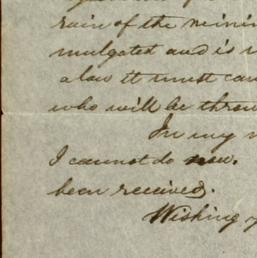 rain of the
mulgated and is
a law it must
who will be
In my
I cannot do now.
been received.
Wishing